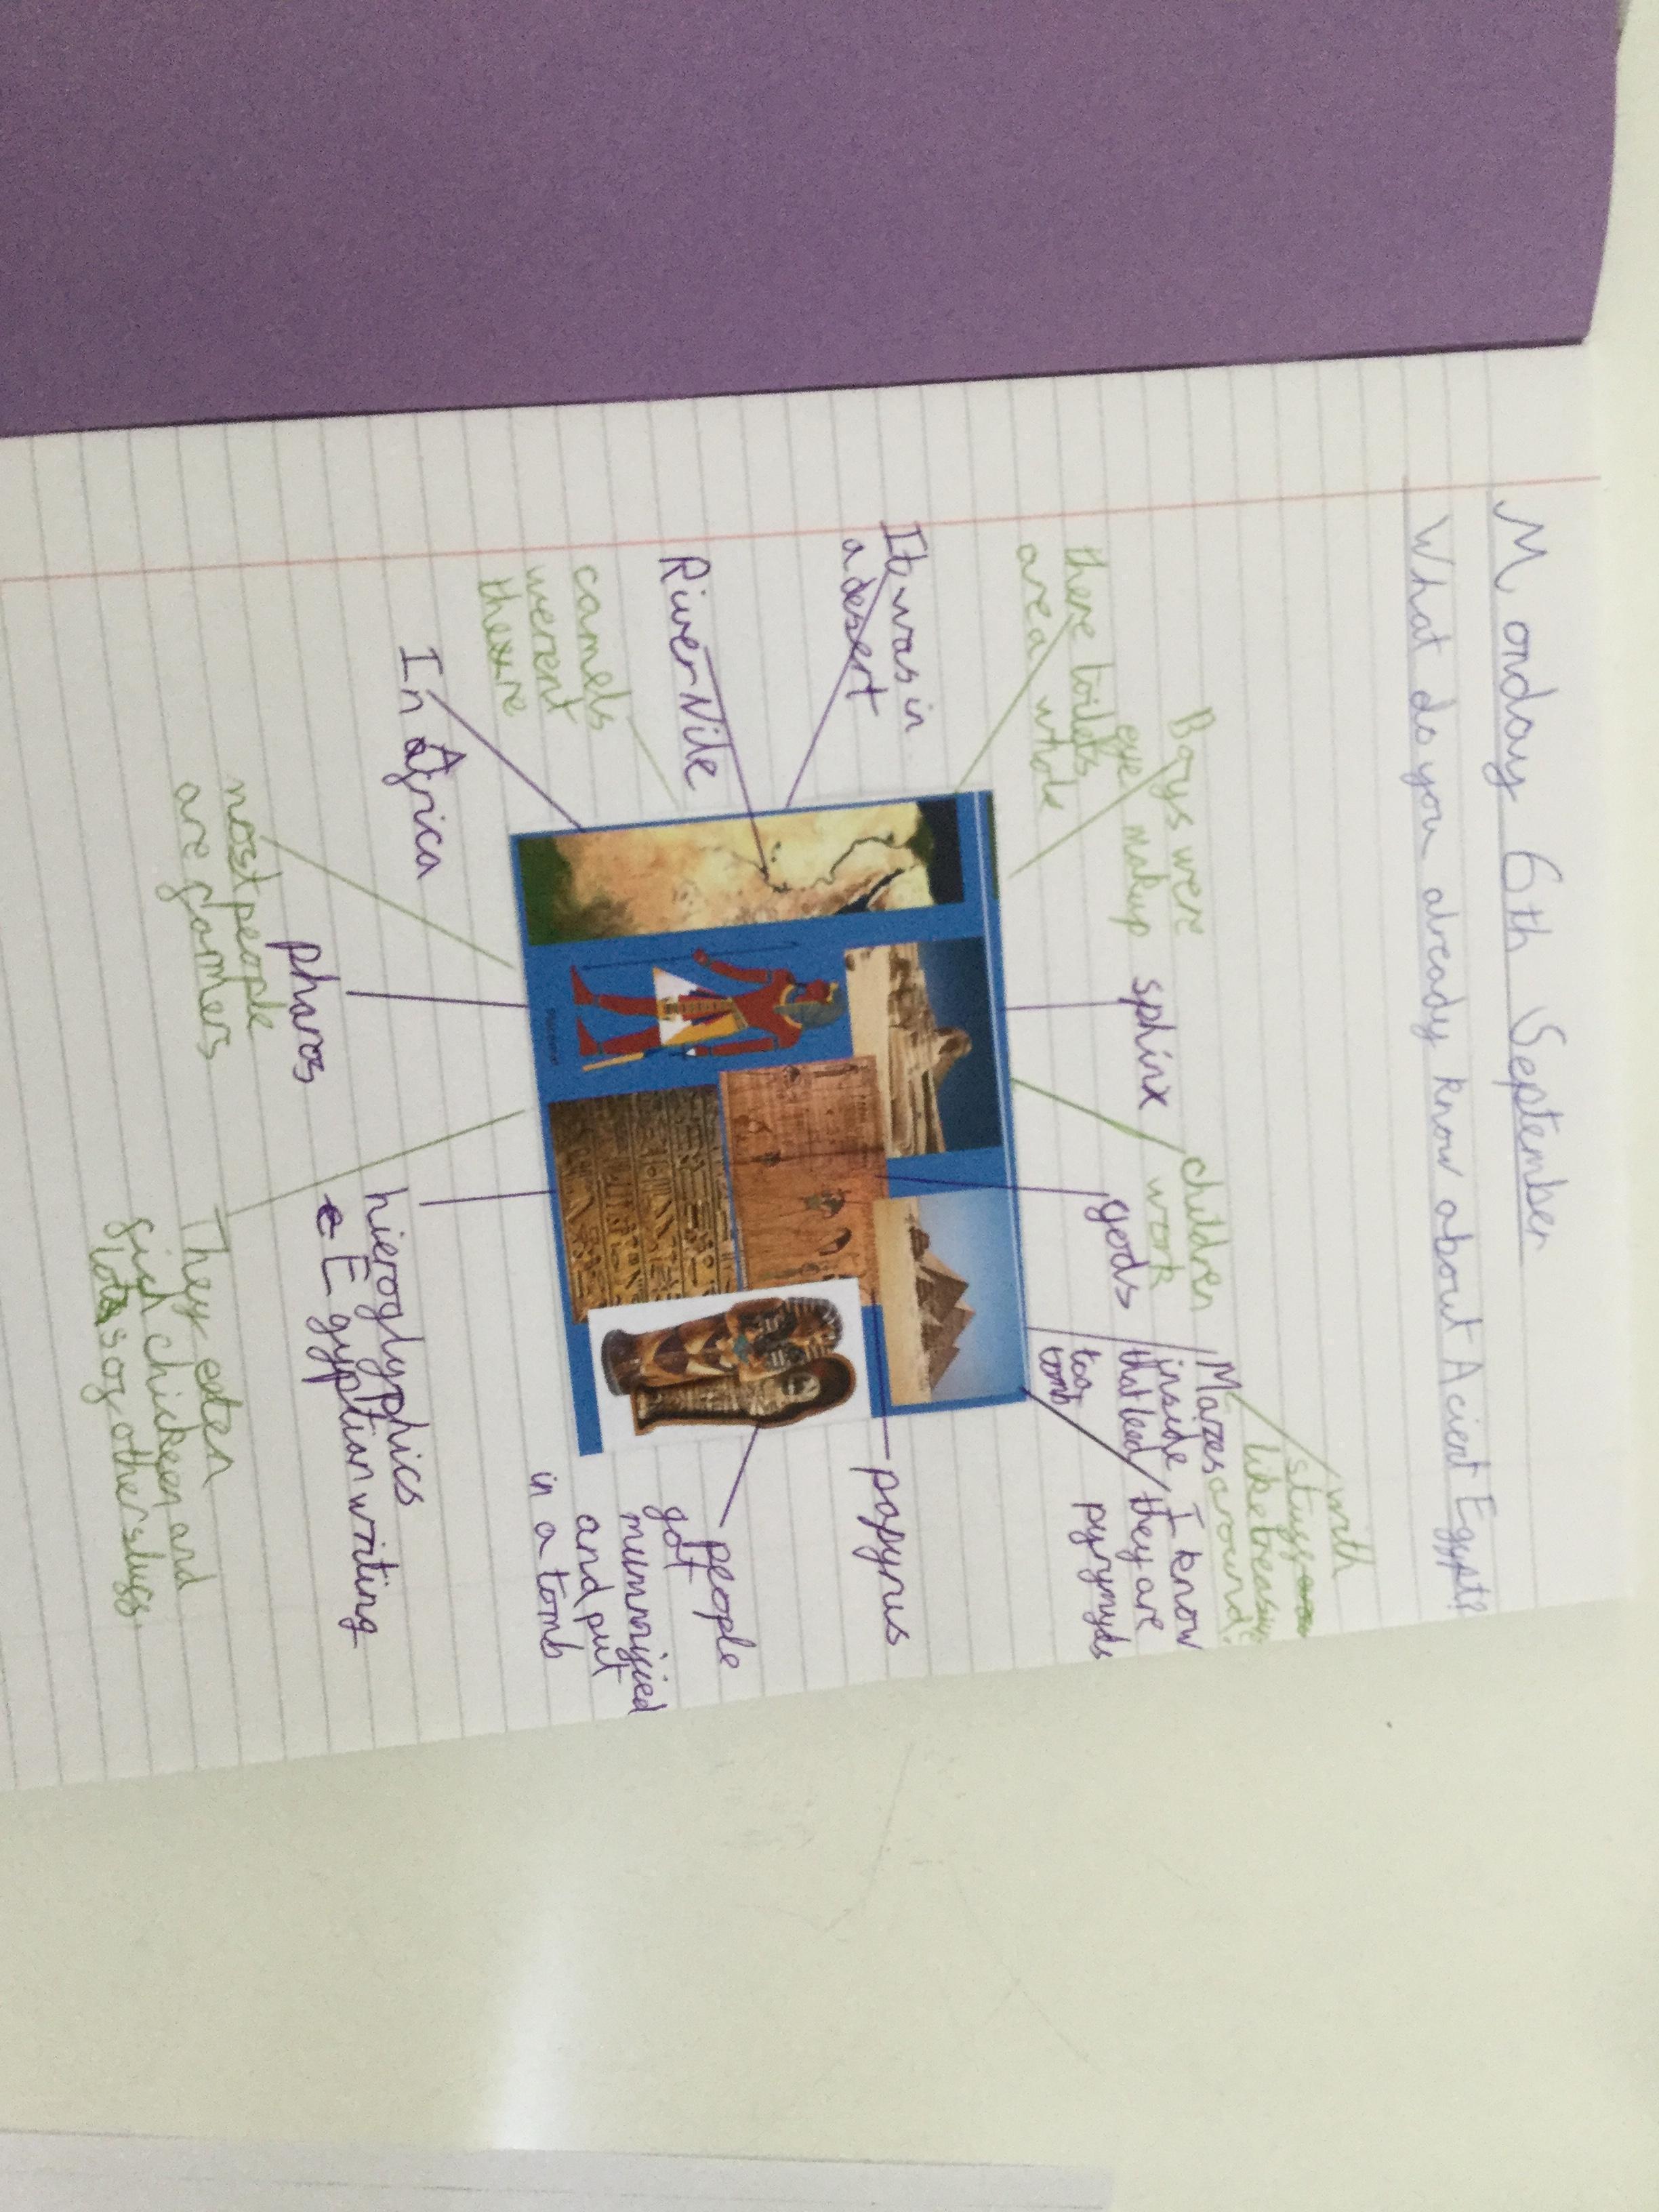 Monday 6th September
What do you already know about Acient Egypt?
Boys were
eye makup
there toilets
are a whole
It was in
a desert
River Nile
camels
werent
there
In Africa
most people
are farmers
pharos
hieroglyphics
e Egyptian writing
They eaten
fish chicken and
lots of other slugs.
sphinx
children
work
gods
Mazes
inside
that lead
to a
tomb
with
stuff
like treasure
around.
I know
they are
pyrymyds
papyrus
people
got
mummified
and put
in a tomb